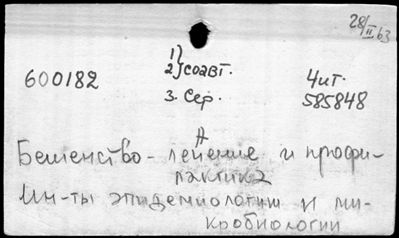 28/II 63
1)
2) соавт.
600182
Чит.
3. Сер.
585848
А
Бешенство - лечение и профи-
лактика
Ин-ты эпидемиологии и ми-
кробиологии